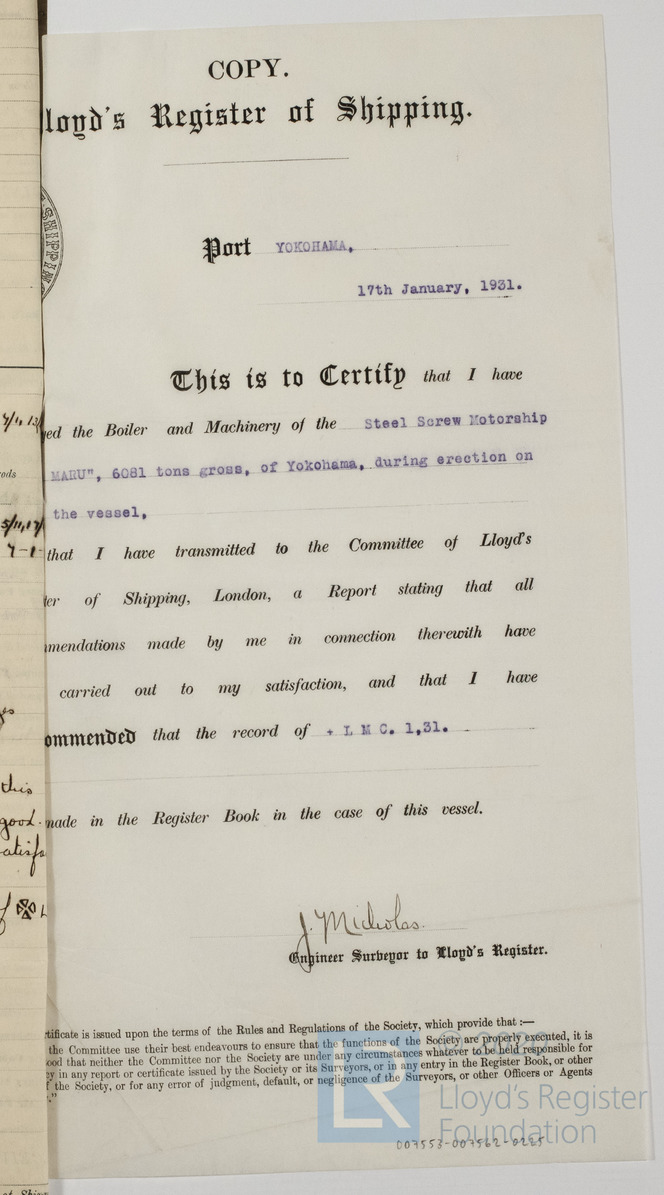 COPY.
loyd's Register of Shipping.
SHIPPING
Port YOKOHAMA,
17th January, 1931.
This is to Certify that I have
yed the Boiler and Machinery of the Steel Screw Motorship
MARU", 6081 tons gross, of Yokohama, during erection on
the vessel,
that I have transmitted to the Committee of Lloyd's
ter of Shipping, London, a Report stating that all
mmendations made by me in connection therewith have
carried out to my satisfaction, and that I have
ommended that the record of + L M C. 1,31.
made in the Register Book in the case of this vessel.
this
good.
satisf
J. Nicholas.
Engineer Surveyor to Lloyd's Register.
rtificate is issued upon the terms of the Rules and Regulations of the Society, which provide that :—
the Committee use their best endeavours to ensure that the functions of the Society are properly executed, it is
ood that neither the Committee nor the Society are under any circumstances whatever to be held responsible for
cy in any report or certificate issued by the Society or its Surveyors, or in any entry in the Register Book, or other
f the Society, or for any error of judgment, default, or negligence of the Surveyors, or other Officers or Agents
."
LR
Lloyd's Register
Foundation
007553-007562-0225